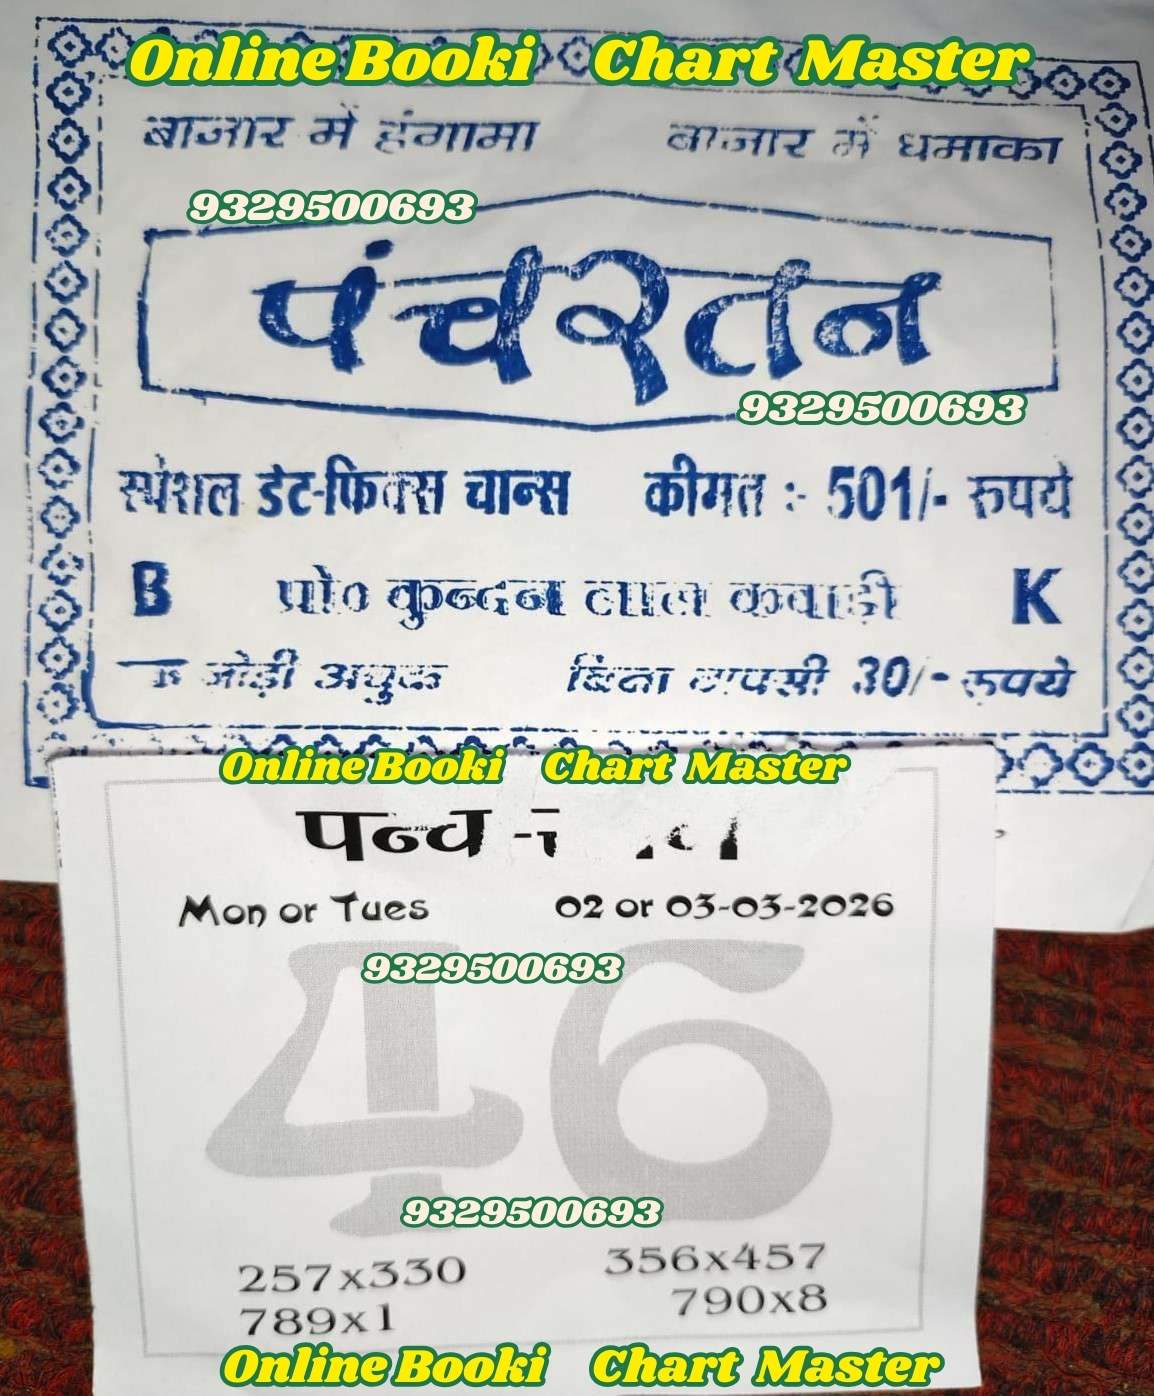 Online Booki Chart Master
बाजार में हंगामा बाजार में धमाका
9329500693
पंचरतन
9329500693
स्पेशल डेट-फिक्स चान्स कीमत :- 501/- रूपये
B प्रो० कुन्दन लाल कबाड़ी K
जोड़ी अचुक बिना वापसी 30/- रूपये
Online Booki Chart Master
पन्च
Mon or Tues 02 or 03-03-2026
9329500693
46
9329500693
257x330 356x457
789x1 790x8
Online Booki Chart Master